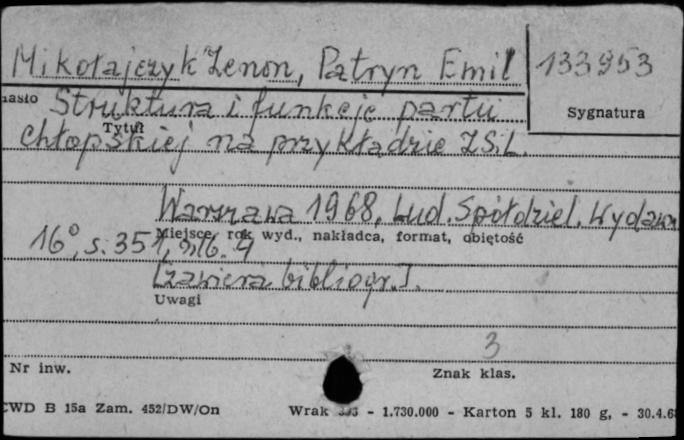 Mikołajczyk Zenon, Patryn Emil
133953
Sygnatura
Hasło Struktura i funkcje partii
Tytuł
chłopskiej na przykładzie ZSL.
Warszawa 1968, Lud. Spółdziel. Wydawn
Miejsce, rok wyd., nakładca, format, objętość
16°, s. 351, nlb. 4
[zawiera bibliogr.].
Uwagi
3
Nr inw.
Znak klas.
CWD B 15a Zam. 452/DW/On
Wrak - 1.730.000 - Karton 5 kl. 180 g, - 30.4.6